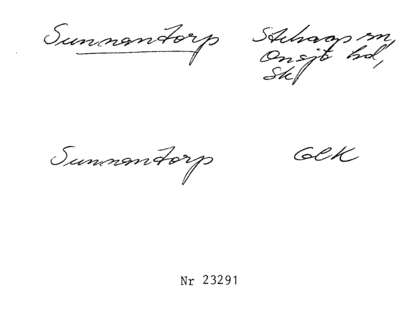 Sunnantorp Stehags sn,
Onsjö hd,
Sk
Sunnantorp GEK
Nr 23291